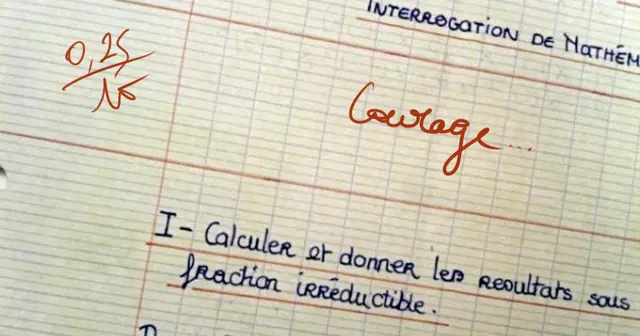 INTERROGATION DE MATHÉM
0,25
15
Courage...
I- Calculer et donner les resultats sous
fraction irréductible.